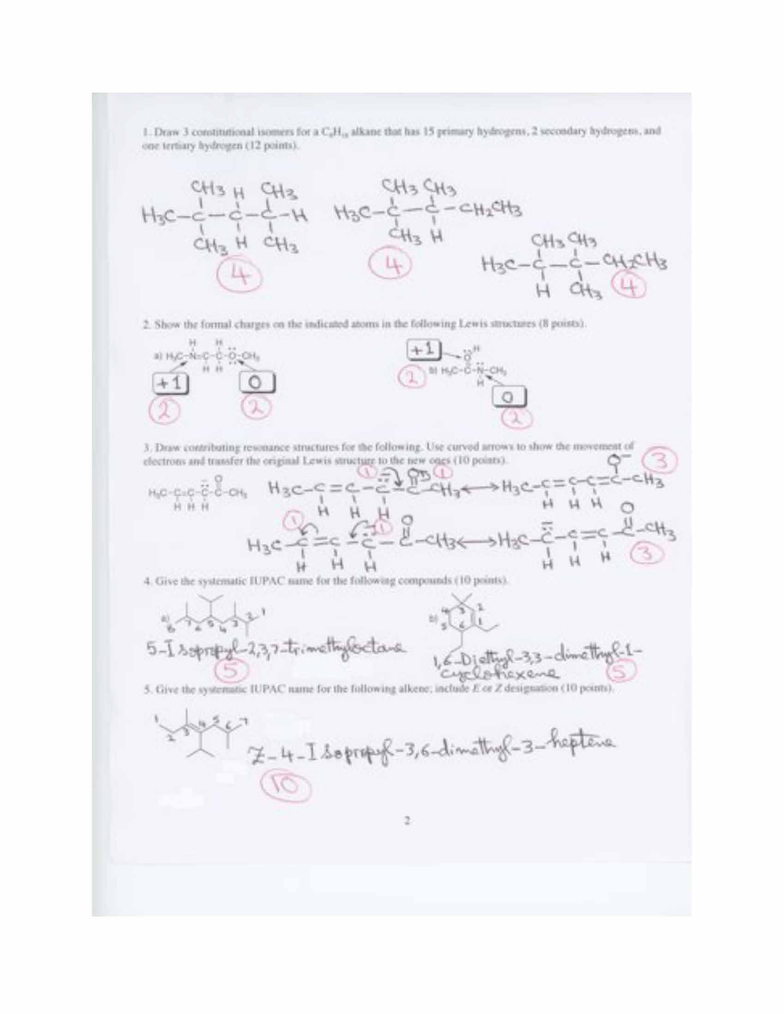 1. Draw 3 constitutional isomers for a C8H18 alkane that has 15 primary hydrogens, 2 secondary hydrogens, and
one tertiary hydrogen (12 points).
CH3 H CH3
H3C-C-C-C-H
CH3 H CH3
4
CH3 CH3
H3C-C-C-CH2CH3
CH3 H
4
CH3 CH3
H3C-C-C-CH2CH3
H CH3
4
2. Show the formal charges on the indicated atoms in the following Lewis structures (8 points).
H H
a) H3C-N=C-C-O-CH3
H H
+1
0
2
2
+1
H
O
2
b) H3C-C-N-CH3
H
0
2
3. Draw contributing resonance structures for the following. Use curved arrows to show the movement of
electrons and transfer the original Lewis structure to the new ones (10 points).
O
H3C-C=C-C-C-CH3
H H H
1
O
1
H3C-C=C-C-C-CH3
H H H
O-
H3C-C=C-C=C-CH3
H H H
3
1
1
O
H3C-C=C-C-C-CH3
H H H
O
H3C-C-C=C-C-CH3
H H H
3
4. Give the systematic IUPAC name for the following compounds (10 points).
a)
8 7 6 5 4 3 2 1
5-Isopropyl-2,3,7-trimethyloctane
5
b)
4 3 2
5 6 1
1,6-Diethyl-3,3-dimethyl-1-
cyclohexene
5
5. Give the systematic IUPAC name for the following alkene; include E or Z designation (10 points).
1 2 3 4 5 6 7
Z-4-Isopropyl-3,6-dimethyl-3-heptene
10
2